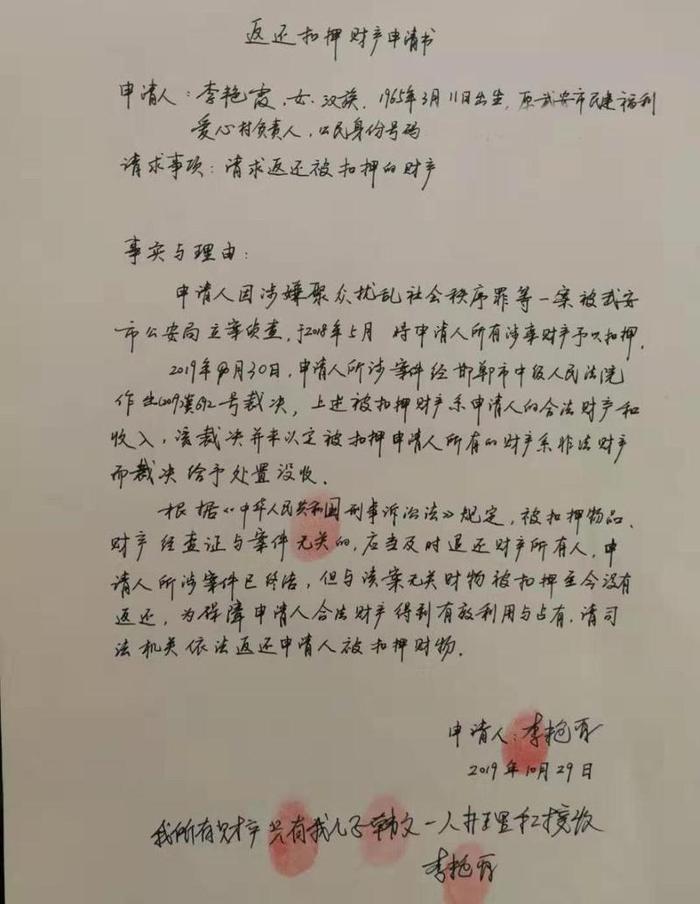 返还扣押财产申请书
申请人：李艳霞，女．汉族．1965年3月11日出生，原武安市民建福利
爱心村负责人，公民身份号码
请求事项：请求返还被扣押的财产
事实与理由：
申请人因涉嫌聚众扰乱社会秩序罪等一案被武安
市公安局立案侦查，于2018年5月 将申请人所有涉案财产予以扣押．
2019年 月30日，申请人所涉案件经邯郸市中级人民法院
作出 692号裁决，上述被扣押财产系申请人的合法财产和
收入，该裁决并未认定被扣押申请人所有的财产系非法财产
而裁决给予处置没收．
根据《中华人民共和国刑事诉讼法》规定，被扣押物品、
财产经查证与案件无关的，应当及时退还财产所有人，申
请人所涉案件已终结，但与该案无关财物被扣押至今没有
返还，为保障申请人合法财产得到有效利用与占有，请司
法机关依法返还申请人被扣押财物．
申请人：李艳霞
2019年10月29日
我所有财产只有我儿子韩文一人 和接收
李艳霞